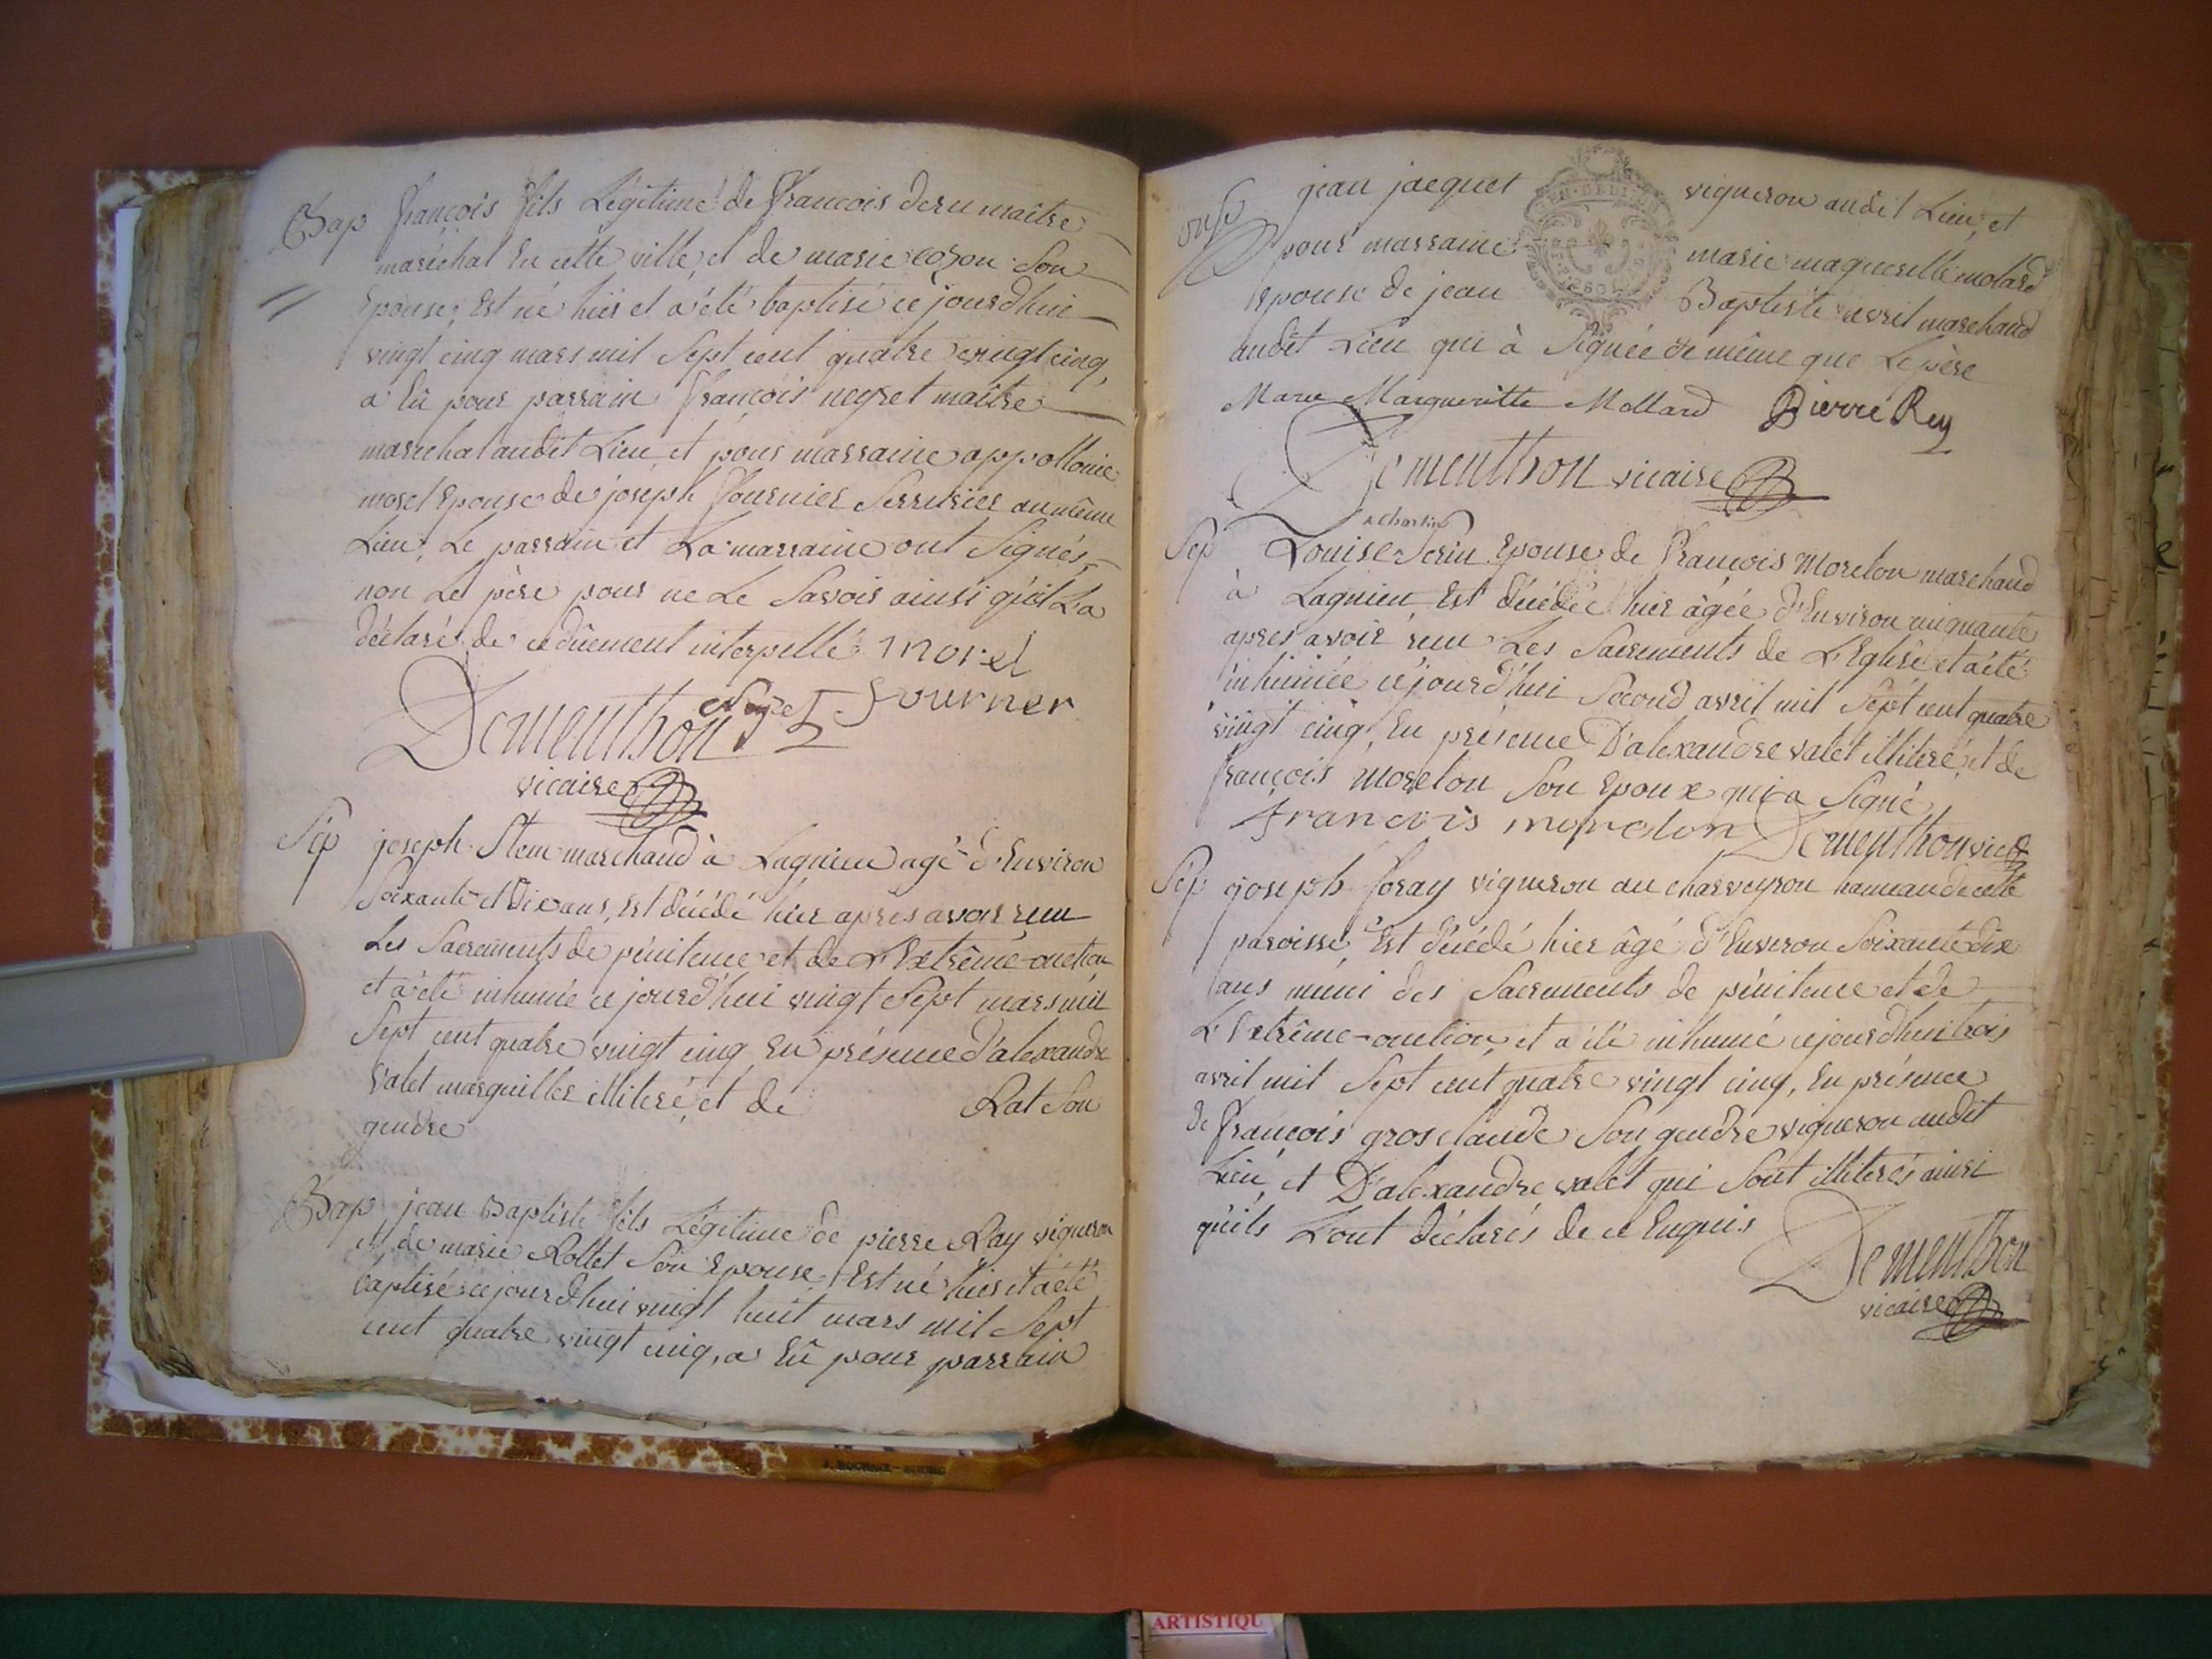 Bap françois fils Légitime de françois deru maître
maréchal En cette ville, et de marie cozon Son
Epouse, Est né hier et a été baptisé ce jourd'hui
vingt cinq mars mil Sept cent quatre vingt cinq,
a Eû pour parrain françois neyret maître
marechal audit Lieu, et pour marraine appollonie
morel Epouse de joseph fournier Serrurier au même
Lieu, Le parrain et La marraine ont Signés,
non Le père pour ne Le Savoir ainsi qu'il L'a
déclaré de ce dûement interpellé morel
Neyret fourner
Dementhon
vicaire
Sep joseph Stem marchand à Lagnieu agé d'Environ
Soixante et Dix ans, Est décédé hier après avoir reçu
Les Sacrements de pénitence et de L'Extrême-onction
et a été inhumé ce jourd'hui vingt Sept mars mil
Sept cent quatre vingt cinq En présence d'alexandre
valet marguiller illiteré, et de Rat Son
gendre
Bap jean Baptiste fils Légitime de pierre Ray vigneron
et de marie Rollet Son Epouse, Est né hier et a été
baptisé ce jourd'hui vingt huit mars mil Sept
cent quatre vingt cinq, a Eû pour parrain
jean jacquet vigneron audit Lieu, et
pour marraine marie magueritte molard
Epouse de jean Baptiste avril marchand
audit Lieu qui à Signée de même que Le père
Marie Margueritte Mollard Pierre Rey
Dementhon vicaire
Sep Louise Serin Epouse de François Morelon marchand
à Lagnieu, Est décédée hier âgée d'Environ cinquante
apres avoir reçu Les Sacrements de L'Eglise et a été
inhumée ce jourd'hui Second avril mil Sept cent quatre
vingt cinq, En presence D'alexandre valet illiteré, et de
françois morelon Son Epoux qui a Signé
francois morelon Dementhon vic
Sep joseph foray vigneron au charveyron hameau de cette
paroisse, Est décédé hier âgé d'Environ Soixante dix
ans muni des Sacrements de pénitence et de
L'Extrême-onction, et a été inhumé ce jourd'hui trois
avril mil Sept cent quatre vingt cinq, En présence
de françois grosclaude Son gendre vigneron audit
Lieu, et D'alexandre valet qui Sont illiterés ainsi
qu'ils L'ont déclarés de ce Enquis
Dementhon
vicaire
ARTISTIQU